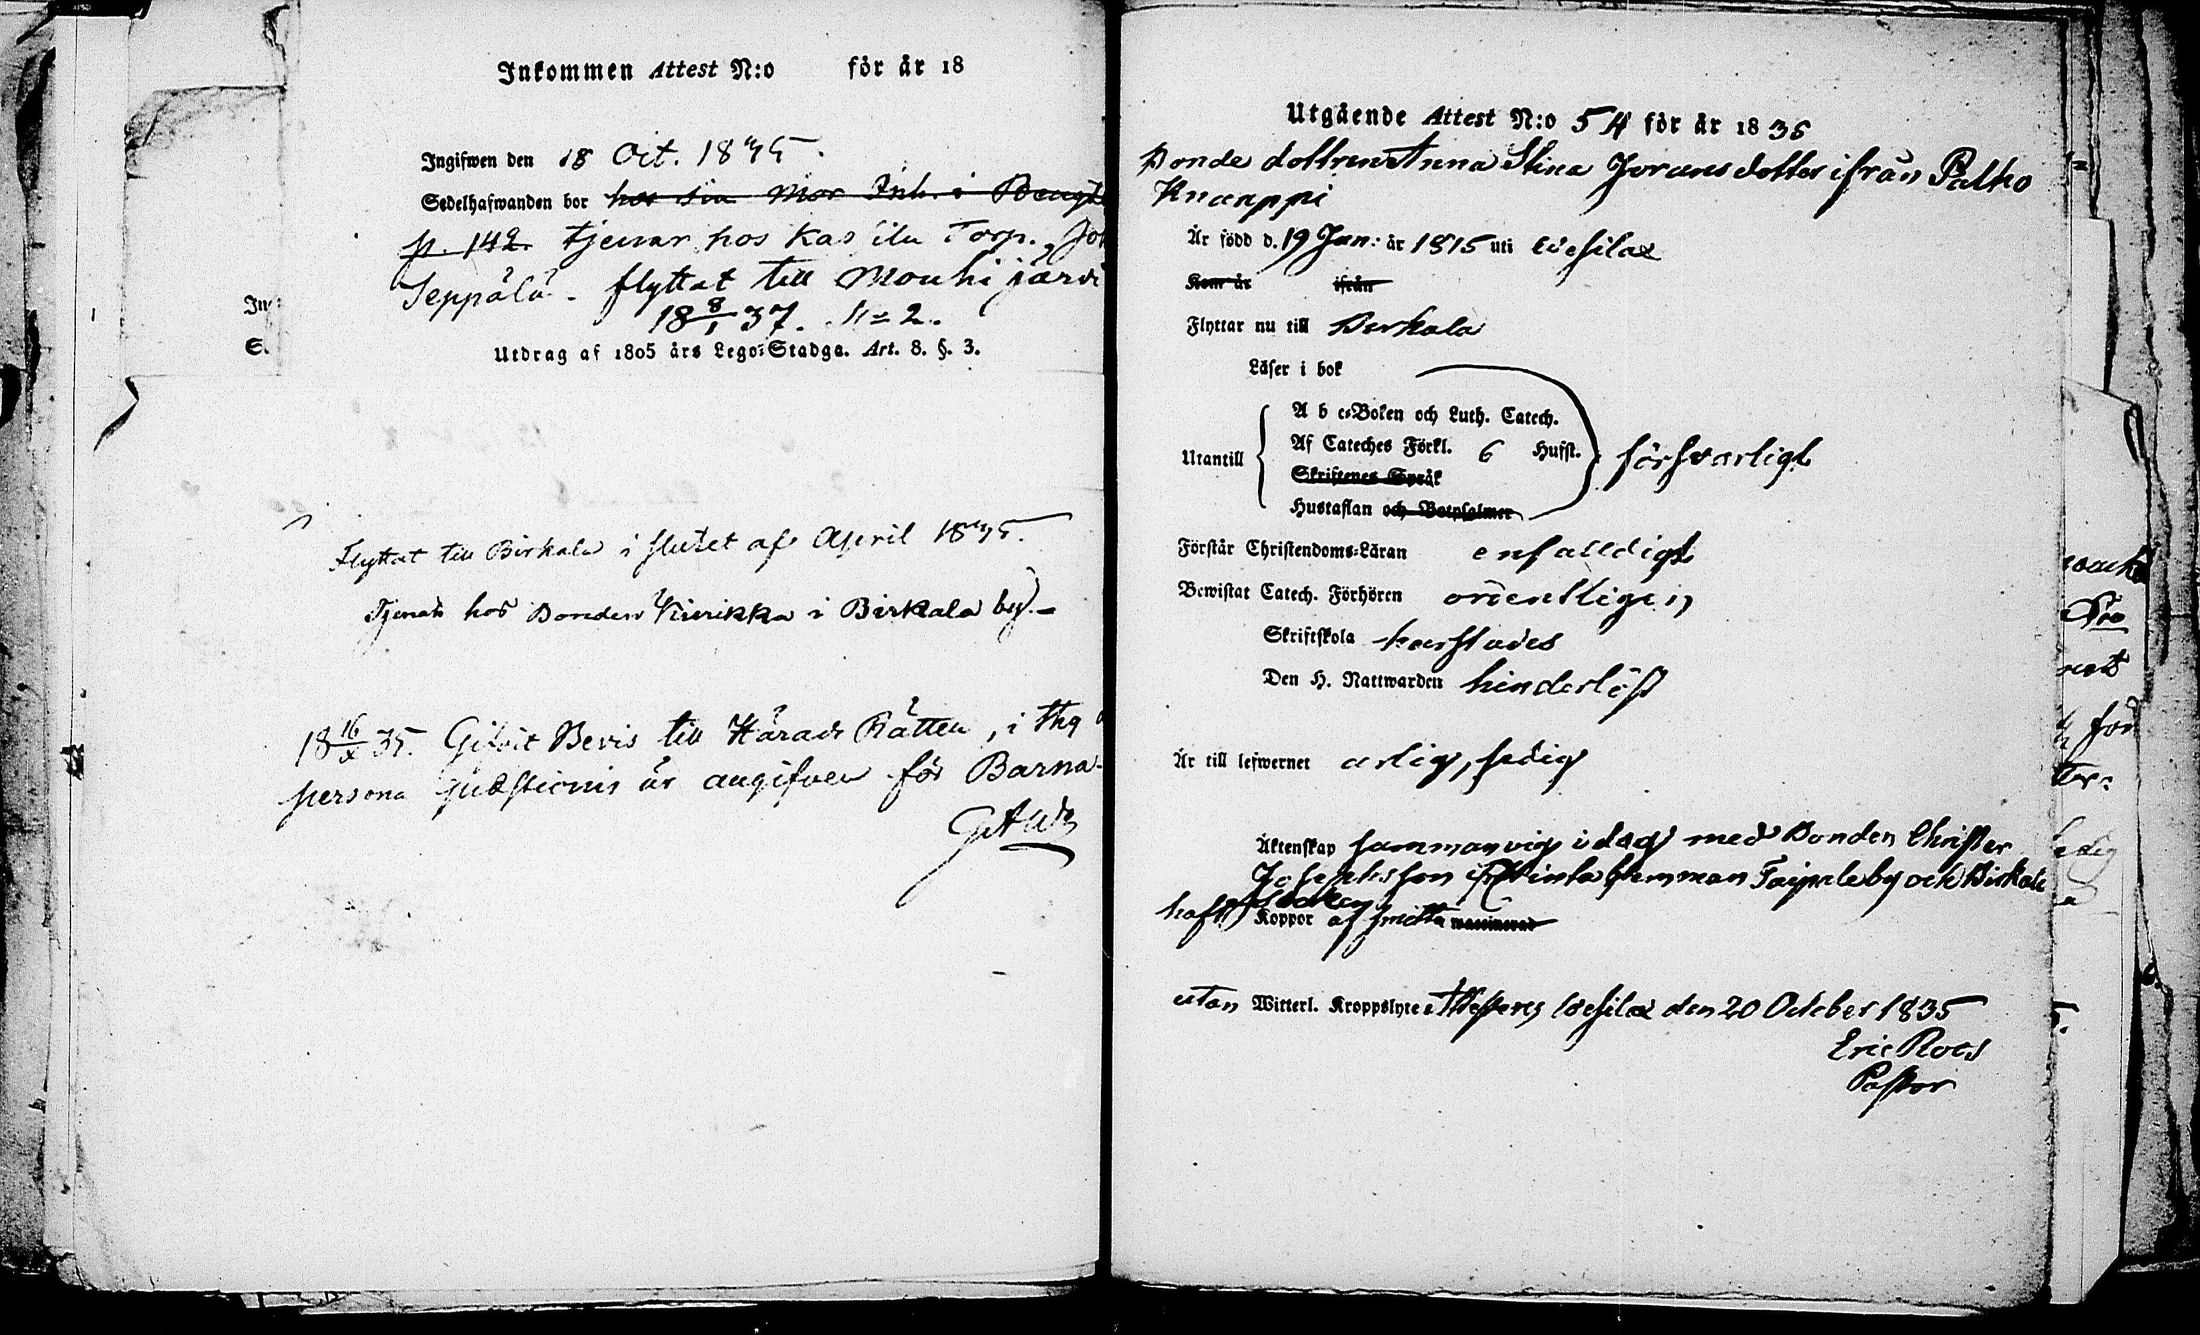 Inkommen Attest N:o för år 18
Ingifwen den 18 Oct. 1835.
Sedelhafwanden bor hos sin Mor Inh. i
p. 142. tjenar hos Kas ila Torp.
Seppälä - flyttat till Mouhijärvi
18 8/1 37. N:o 2.
Utdrag af 1805 års Lego-Stadga. Art. 8. §. 3.
Flyttat till Birkala i slutet af April 1835.
Tjenat hos Bonden i Birkala by.
18 16/X 35. Gifvit Bevis till Härads Rätten, i
persona quæstionis är angifven för Barna-
Utgående Attest N:o 54 för år 1835
Bonde dottren Anna Stina Jöransdotter ifrån Palho
Knaappi
Är född d. 19 Jan: år 1815 uti Wesilax
Kom år ifrån
Flyttar nu till Birkala
Läser i bok
A b c-Boken och Luth. Catech.
Af Cateches Förkl. 6 Hufst.
Utantill försvarligt
Skriftenes Språk
Hustaflan och Botpsalmer
Förstår Christendoms-Läran enfaldigt
Bewistat Catech. Förhören ordentligen
Skriftskola
Den H. Nattwarden hinderlöst
Är till lefwernet ärlig, sedig
Äktenskap sammanvigd i dag med Bonden Christer
Josephsson ifr. hemman Taipale by och Birkala
Socken
haft Koppor af smitta waccinerad
utan Witterl. Kroppslyte Attesteras Wesilax den 20 October 1835
Eric Roos
Pastor